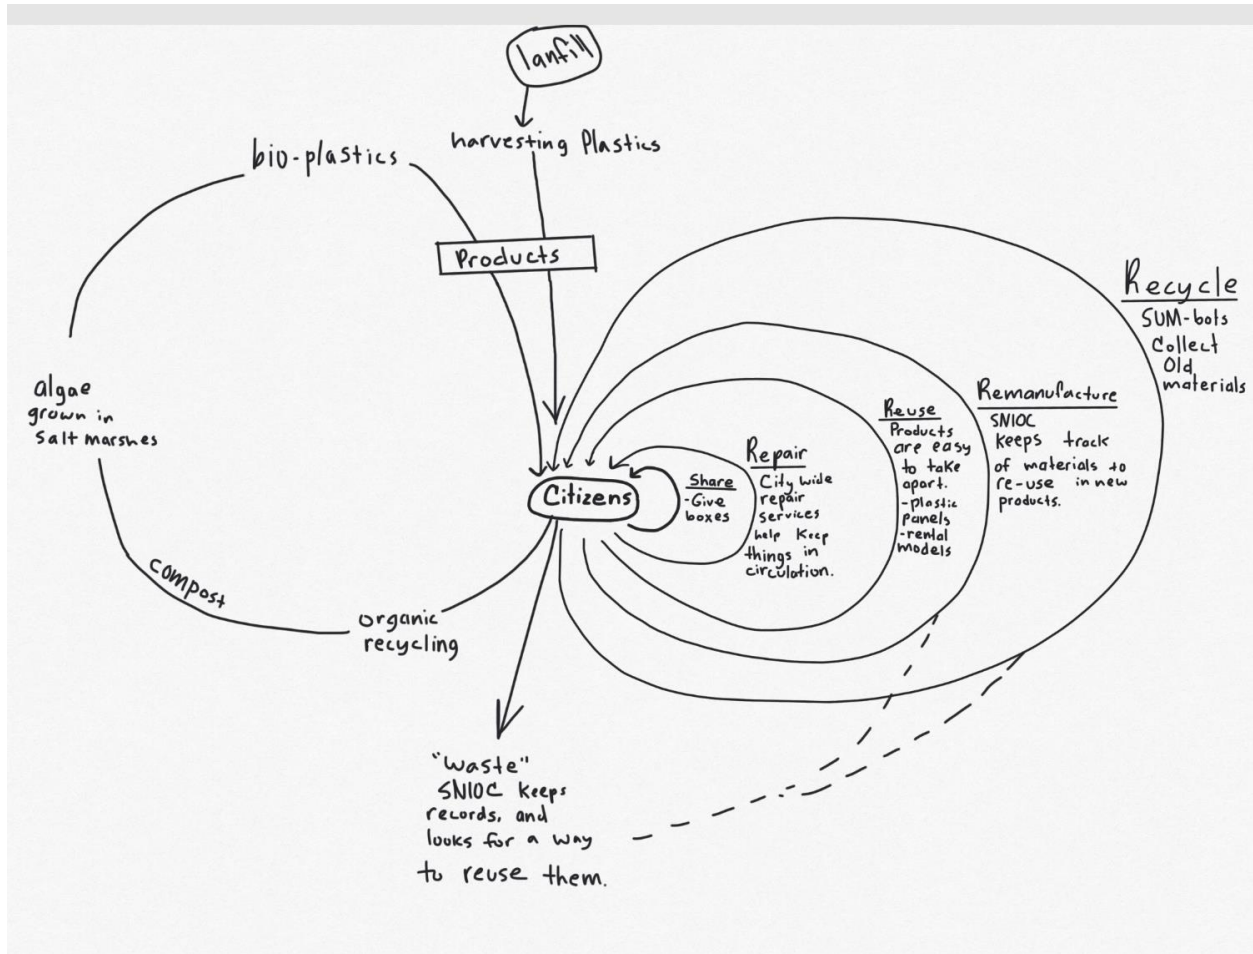 lanfill
harvesting Plastics
bio-plastics
Products
algae
grown in
Salt marshes
compost
organic
recycling
Citizens
Share
-Give
boxes
Repair
City wide
repair
services
help keep
things in
circulation.
Reuse
Products
are easy
to take
apart.
-plastic
panels
-rental
models
Remanufacture
SNIOC
keeps track
of materials to
re-use in new
products.
Recycle
SUM-bots
Collect
Old
materials
"waste"
SNIOC keeps
records, and
looks for a way
to reuse them.